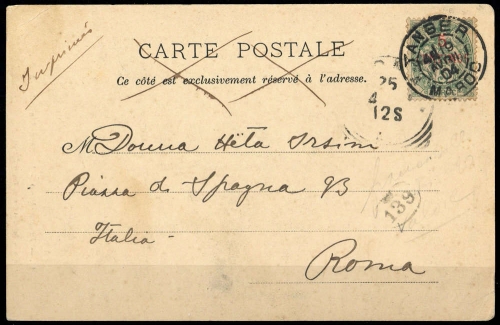 Imprimés
CARTE POSTALE
Ce côté est exclusivement réservé à l'adresse.
TANGER
04
MAROC
25
4
12S
M Donna Hëta Orsini
Piazza di Spagna 93
Italia -
139
Roma